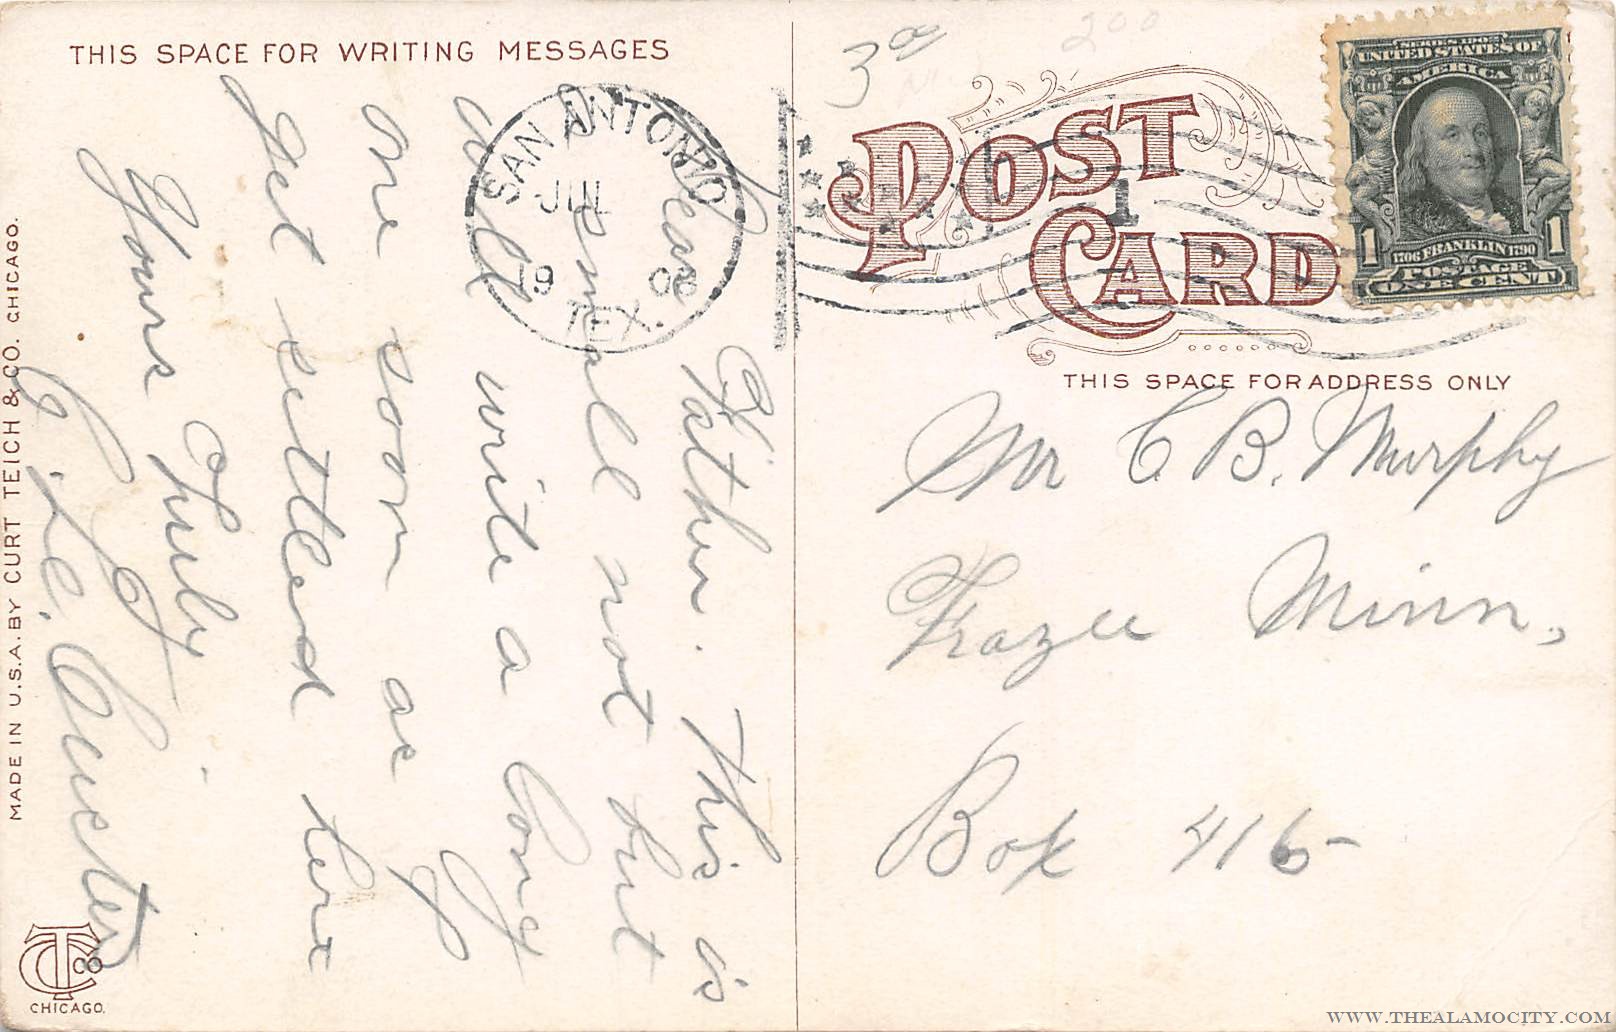 THIS SPACE FOR WRITING MESSAGES
Dear Father. This is
small not but
will write a long
one soon as I
get settled here
Yours Truly
C. Le.
MADE IN U.S.A. BY CURT TEICH & CO. CHICAGO.
CT
CHICAGO.
SAN ANTONIO
JUL
19 08
TEX.
3 00
200
POST
CARD
1
SERIES 1902
UNITED STATES OF
AMERICA
1 1706 FRANKLIN 1790 1
POSTAGE
ONE CENT
THIS SPACE FOR ADDRESS ONLY
Mr C B. Murphy
Frazee Minn,
Box 416-
WWW.THEALAMOCITY.COM